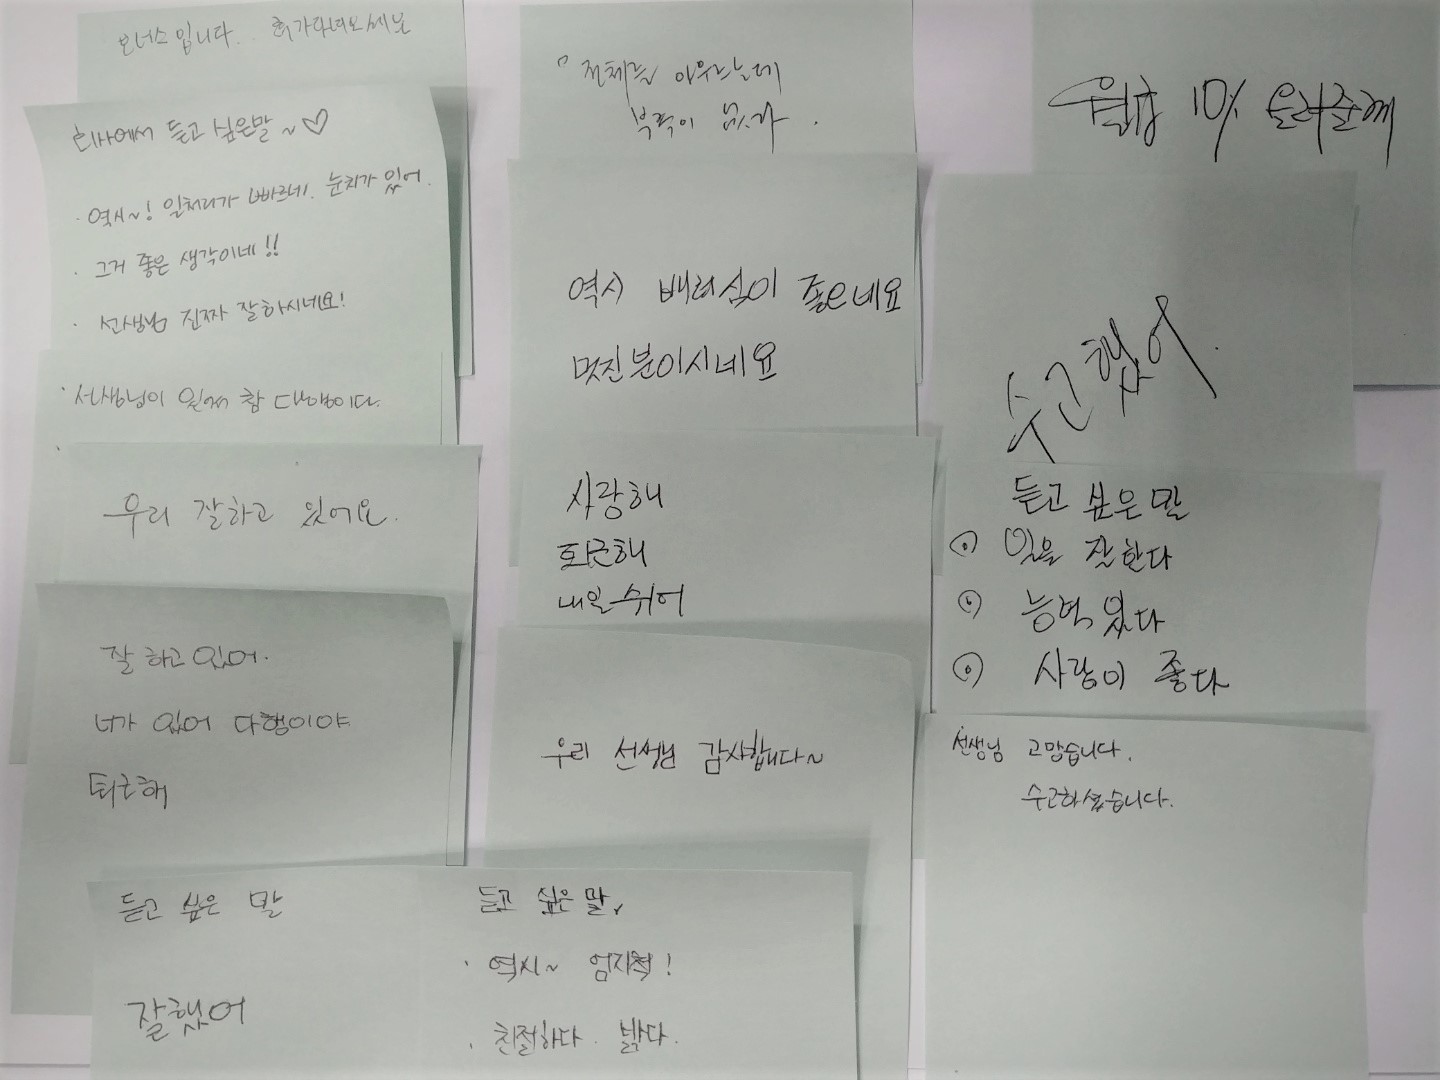 보너스입니다.. 휴가다녀오세요
회사에서 듣고 싶은말~♡
· 역시~! 일처리가 빠르네. 눈치가 있어.
· 그거 좋은 생각이네!!
· 선생님 진짜 잘하시네요!
· 선생님이 있어 참 다행이다.
우리 잘하고 있어요.
잘 하고 있어.
너가 있어 다행이야
퇴근해
듣고 싶은 말
잘했어
전체를 아우르는데
부족이 없다.
역시 배려심이 좋은네요
멋진분이시네요
사랑해
퇴근해
내일 쉬어
우리 선생님 감사합니다~
듣고 싶은 말
· 역시~ 엄지척!
· 친절하다. 밝다.
월급 10% 올려줄께
수고했어.
듣고 싶은 말
일을 잘한다
능력있다
사람이 좋다
선생님 고맙습니다.
수고하셨습니다.